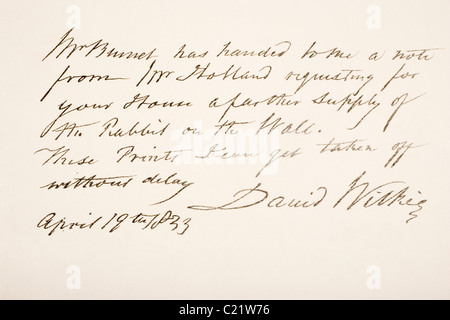 Mr Burnet has handed to me a note
from Mr Holland requesting for
your House a farther supply of
the Rabbit on the Wall.
These Prints I can get taken off
without delay
David Wilkie
April 19th 1833
alamy
C21W76
www.alamy.com